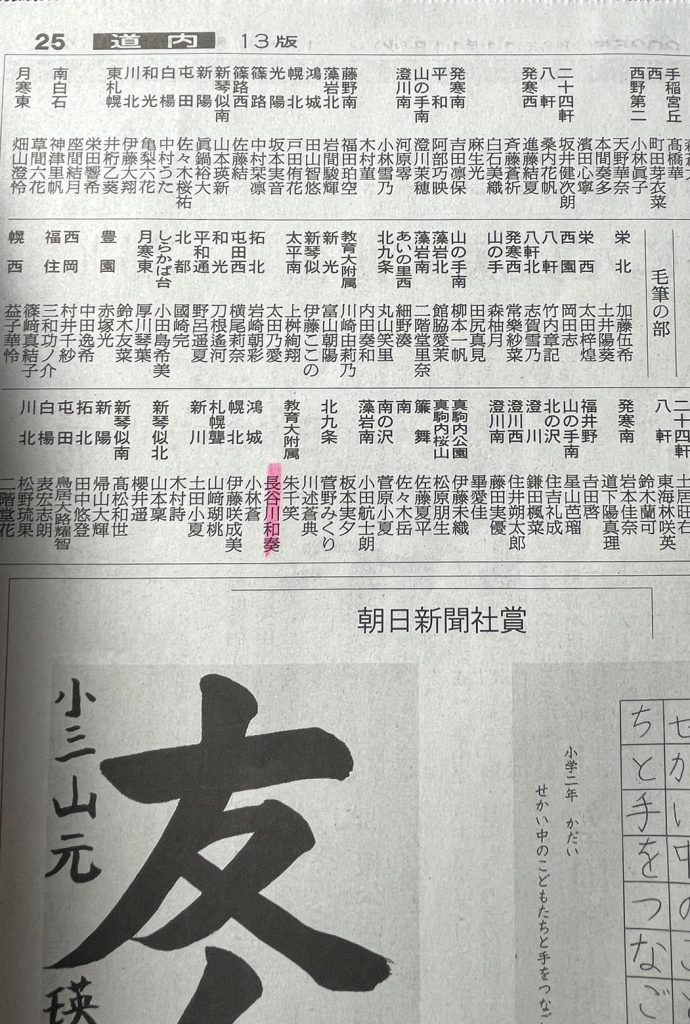 25 道内 13版
手稲宮丘
西
西野第二
二十四軒
八軒
発寒西
発寒南
平和
山の手南
澄川南
藤野南
藻岩北
鴻城
幌北
光陽
篠路
篠路西
新琴似南
新陽
屯田
白楊
和光
川北
東札幌
南白石
月寒東
髙橋華
町田芽衣菜
小林眞子
天野華奈
本間奏多
濱田心寧
坂井健次朗
桑内花帆
進藤結夏
斉藤蒼祈
白石美織
麻生光
吉田凛保
阿部巧映
澄川茉穂
河原零
小林雪乃
木村菫
福田珀空
岩間駿輝
田山智悠
戸田侑花
坂本実音
中村栞凛
佐藤結
山本瑛新
眞鍋裕大
佐々木桜祐
中村うた
亀梨六花
伊藤大翔
井桁乙葵
栄田響希
座間結月
神津里帆
草間六花
畑山澄怜
毛筆の部
栄北
栄西
西園
八軒
八軒北
発寒西
山の手
山の手南
藻岩北
藻岩南
あいの里西
北九条
教育大附属
新光
新琴似
太平南
拓北
屯田西
和光
平和通
北都
しらかば台
月寒東
豊園
西岡
福住
幌西
加藤伍希
土井陽葵
太田梓煌
岡田志
竹内章記
志賀雪乃
常樂紗菜
森柚月
田尻真見
柳本一帆
館脇愛茉
二階堂里奈
細野湊
丸山笑里
内田奏和
川崎由莉乃
富山朝陽
伊藤ここの
上桝絢翔
太田乃愛
岩崎朝彩
横尾莉奈
刀根遙河
野呂遥夏
國崎完
小田島希美
厚川琴葉
鈴木友菜
赤塚光
中田逸希
村井千紗
三和功ノ介
篠﨑真結子
益子華怜
二十四軒
八軒
発寒南
福井野
山の手南
北の沢
澄川
澄川西
澄川南
真駒内公園
真駒内桜山
簾舞
南
南の沢
藻岩南
北九条
教育大附属
鴻城
幌北
札幌聾
新川
新琴似北
新琴似南
新陽
拓北
屯田
白楊
川北
東海林咲英
鈴木蘭可
岩本佳奈
道下陽真理
吉田啓
星山芭瑠
住吉礼成
鎌田楓菜
住井朔太郎
藤田実優
畢愛佳
伊藤未織
松原朋生
佐藤夏平
佐々木岳
菅原小夏
小田航士朗
板本実夕
菅野みくり
川述蒼典
朱千笑
長谷川和奏
小林蒼
伊藤咲成美
山﨑瑚桃
土田小夏
木村詩
山本葉
櫻井遥
髙松和世
帰山大輝
田中悠登
鳥居大路耀智
表宏志朗
松野琉果
二階堂花
朝日新聞社賞
小三山元
瑛
友
小学二年 かだい
せかい中のこどもたちと手をつなご
ちと手をつなご